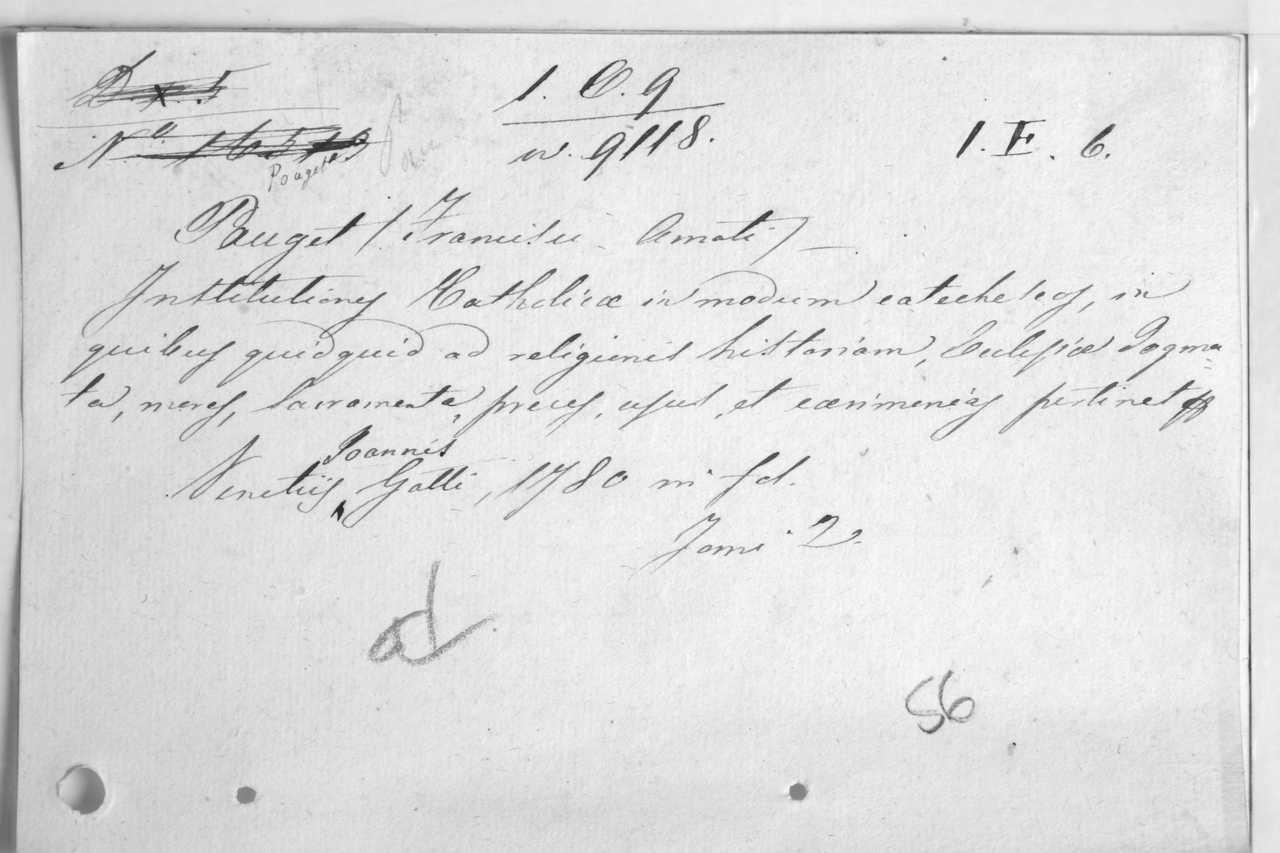 D x. 5
1. C. 9
No. 16513
n. 9118.
1. E. 6.
Pouget
Pouget (Francisci Amati)
Institutiones Catholicæ in modum catecheseos, in
quibus quidquid ad religionis historiam, Ecclesiæ Dogma=
ta, mores, Sacramenta, preces, usus, et cærimonias pertinet
Joannis
Venetiis Gatti, 1780 in fol.
Tomi 2.
ad
56